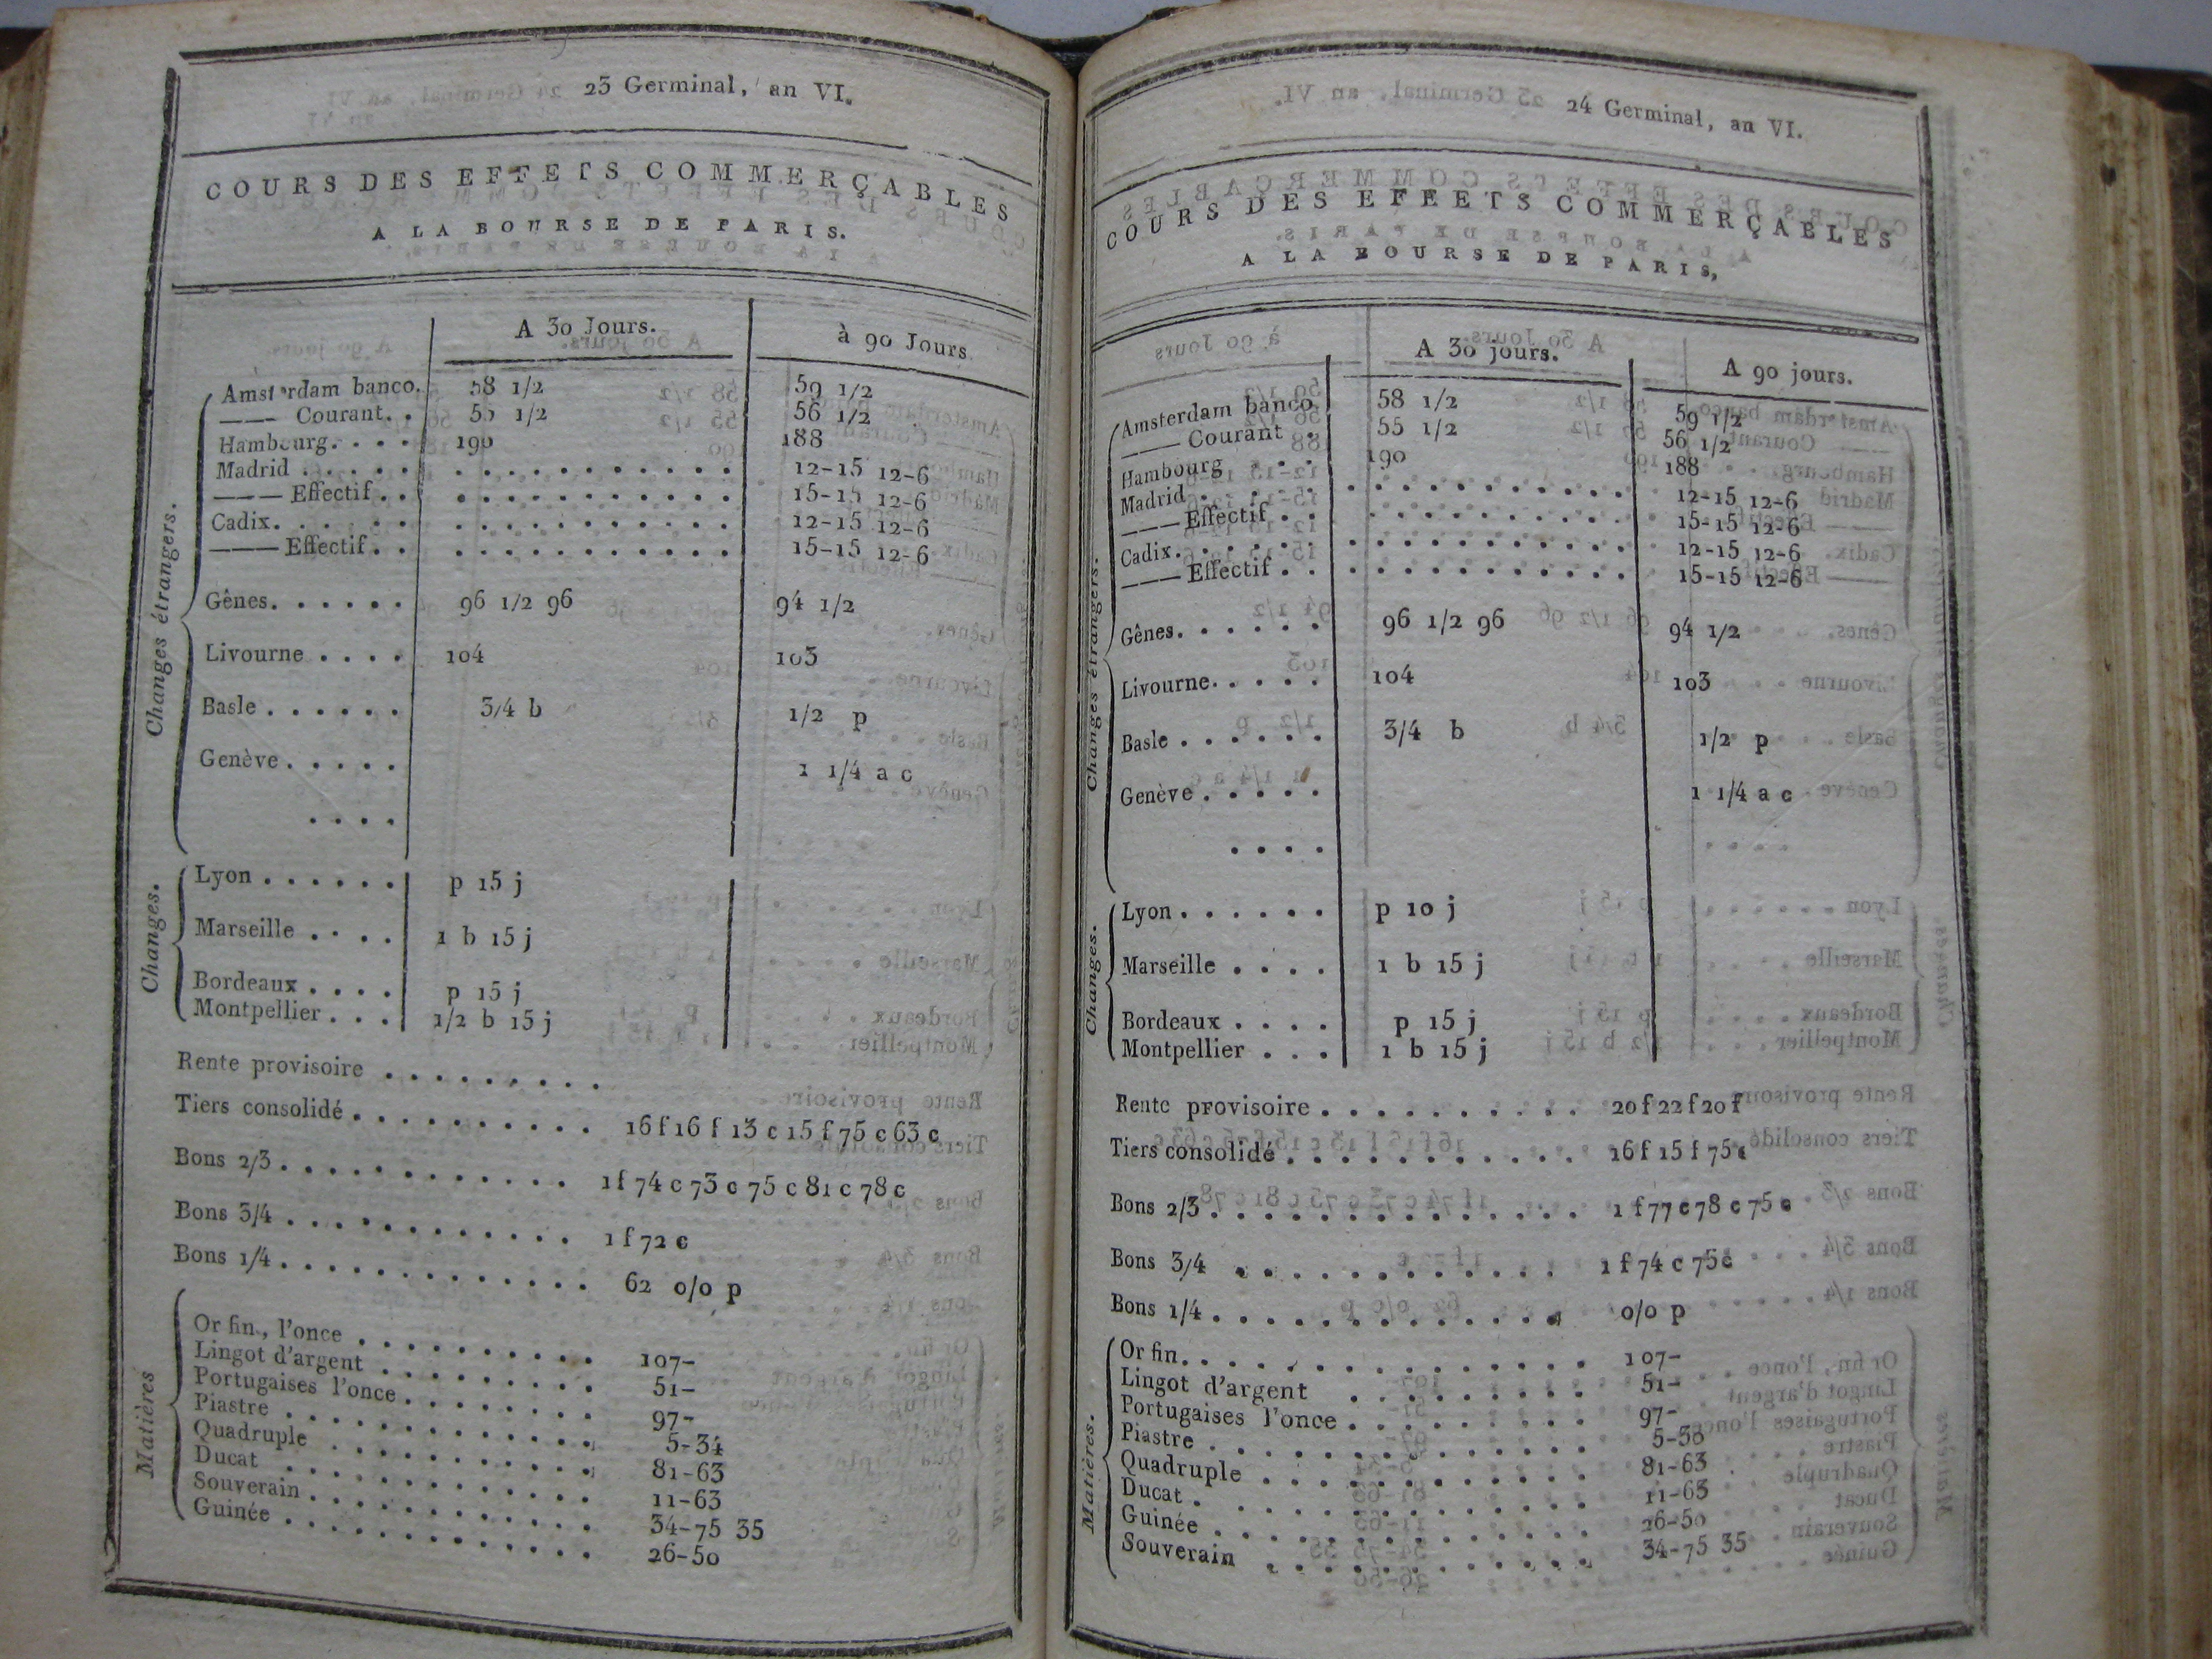 23 Germinal, an VI.
COURS DES EFFETS COMMERÇABLES
A LA BOURSE DE PARIS.
A 30 Jours. à 90 Jours
Changes étrangers.
Amsterdam banco. 58 1/2 59 1/2
——— Courant. . 55 1/2 56 1/2
Hambourg. . . . 190 188
Madrid . . . . . . . . . . . . . . . . 12-15 12-6
——— Effectif . . . . . . . . . . . . . 15-15 12-6
Cadix. . . . . . . . . . . . . . . . . 12-15 12-6
——— Effectif . . . . . . . . . . . . . 15-15 12-6
Gênes. . . . . . 96 1/2 96 94 1/2
Livourne . . . . 104 103
Basle . . . . . . 3/4 b 1/2 p
Genève . . . . . 1 1/4 a c
. . . .
Changes.
Lyon . . . . . . p 15 j
Marseille . . . . 1 b 15 j
Bordeaux . . . . p 15 j
Montpellier . . . 1/2 b 15 j
Rente provisoire . . . . . . . . .
Tiers consolidé . . . . . . . . . . 16 f 16 f 13 c 15 f 75 c 63 c
Bons 2/3 . . . . . . . . . . . . 1 f 74 c 73 c 75 c 81 c 78 c
Bons 3/4 . . . . . . . . . . . . 1 f 72 c
Bons 1/4 . . . . . . . . . . . . . 62 o/o p
Matières
Or fin., l'once . . . . . . . . . . 107-
Lingot d'argent . . . . . . . . . 51-
Portugaises l'once . . . . . . . . 97-
Piastre . . . . . . . . . . . . . 5-34
Quadruple . . . . . . . . . . . 81-63
Ducat . . . . . . . . . . . . . 11-63
Souverain . . . . . . . . . . . . 34-75 35
Guinée . . . . . . . . . . . . . 26-50
24 Germinal, an VI.
COURS DES EFFEETS COMMERÇABLES
A LA BOURSE DE PARIS,
A 30 jours. A 90 jours.
Changes étrangers.
Amsterdam banco 58 1/2 59 1/2
——— Courant . 55 1/2 56 1/2
Hambourg . . . 190 188
Madrid . . . . . . . . . . . . . . . . 12-15 12-6
——— Effectif . . . . . . . . . . . . . 15-15 12-6
Cadix. . . . . . . . . . . . . . . . . 12-15 12-6
——— Effectif . . . . . . . . . . . . . 15-15 12-6
Gênes. . . . . . 96 1/2 96 94 1/2
Livourne. . . . . 104 103
Basle . . . . . . 3/4 b 1/2 p
Genève . . . . . 1 1/4 a c
. . . .
Changes.
Lyon . . . . . . p 10 j
Marseille . . . . 1 b 15 j
Bordeaux . . . . p 15 j
Montpellier . . . 1 b 15 j
Rente provisoire . . . . . . . . . . 20 f 22 f 20 f
Tiers consolidé . . . . . . . . . . . 16 f 15 f 75 c
Bons 2/3 . . . . . . . . . . . . . . 1 f 77 c 78 c 75 c
Bons 3/4 . . . . . . . . . . . . 1 f 74 c 75 c
Bons 1/4 . . . . . . . . . . . . . o/o p
Matières.
Or fin. . . . . . . . . . . . . . . . 107-
Lingot d'argent . . . . . . . . . 51-
Portugaises l'once . . . . . . . . . 97-
Piastre . . . . . . . . . . . . . . 5-36
Quadruple . . . . . . . . . . . . 81-63
Ducat . . . . . . . . . . . . . . 11-63
Guinée . . . . . . . . . . . . . . 26-50
Souverain . . . . . . . . . . . . 34-75 35